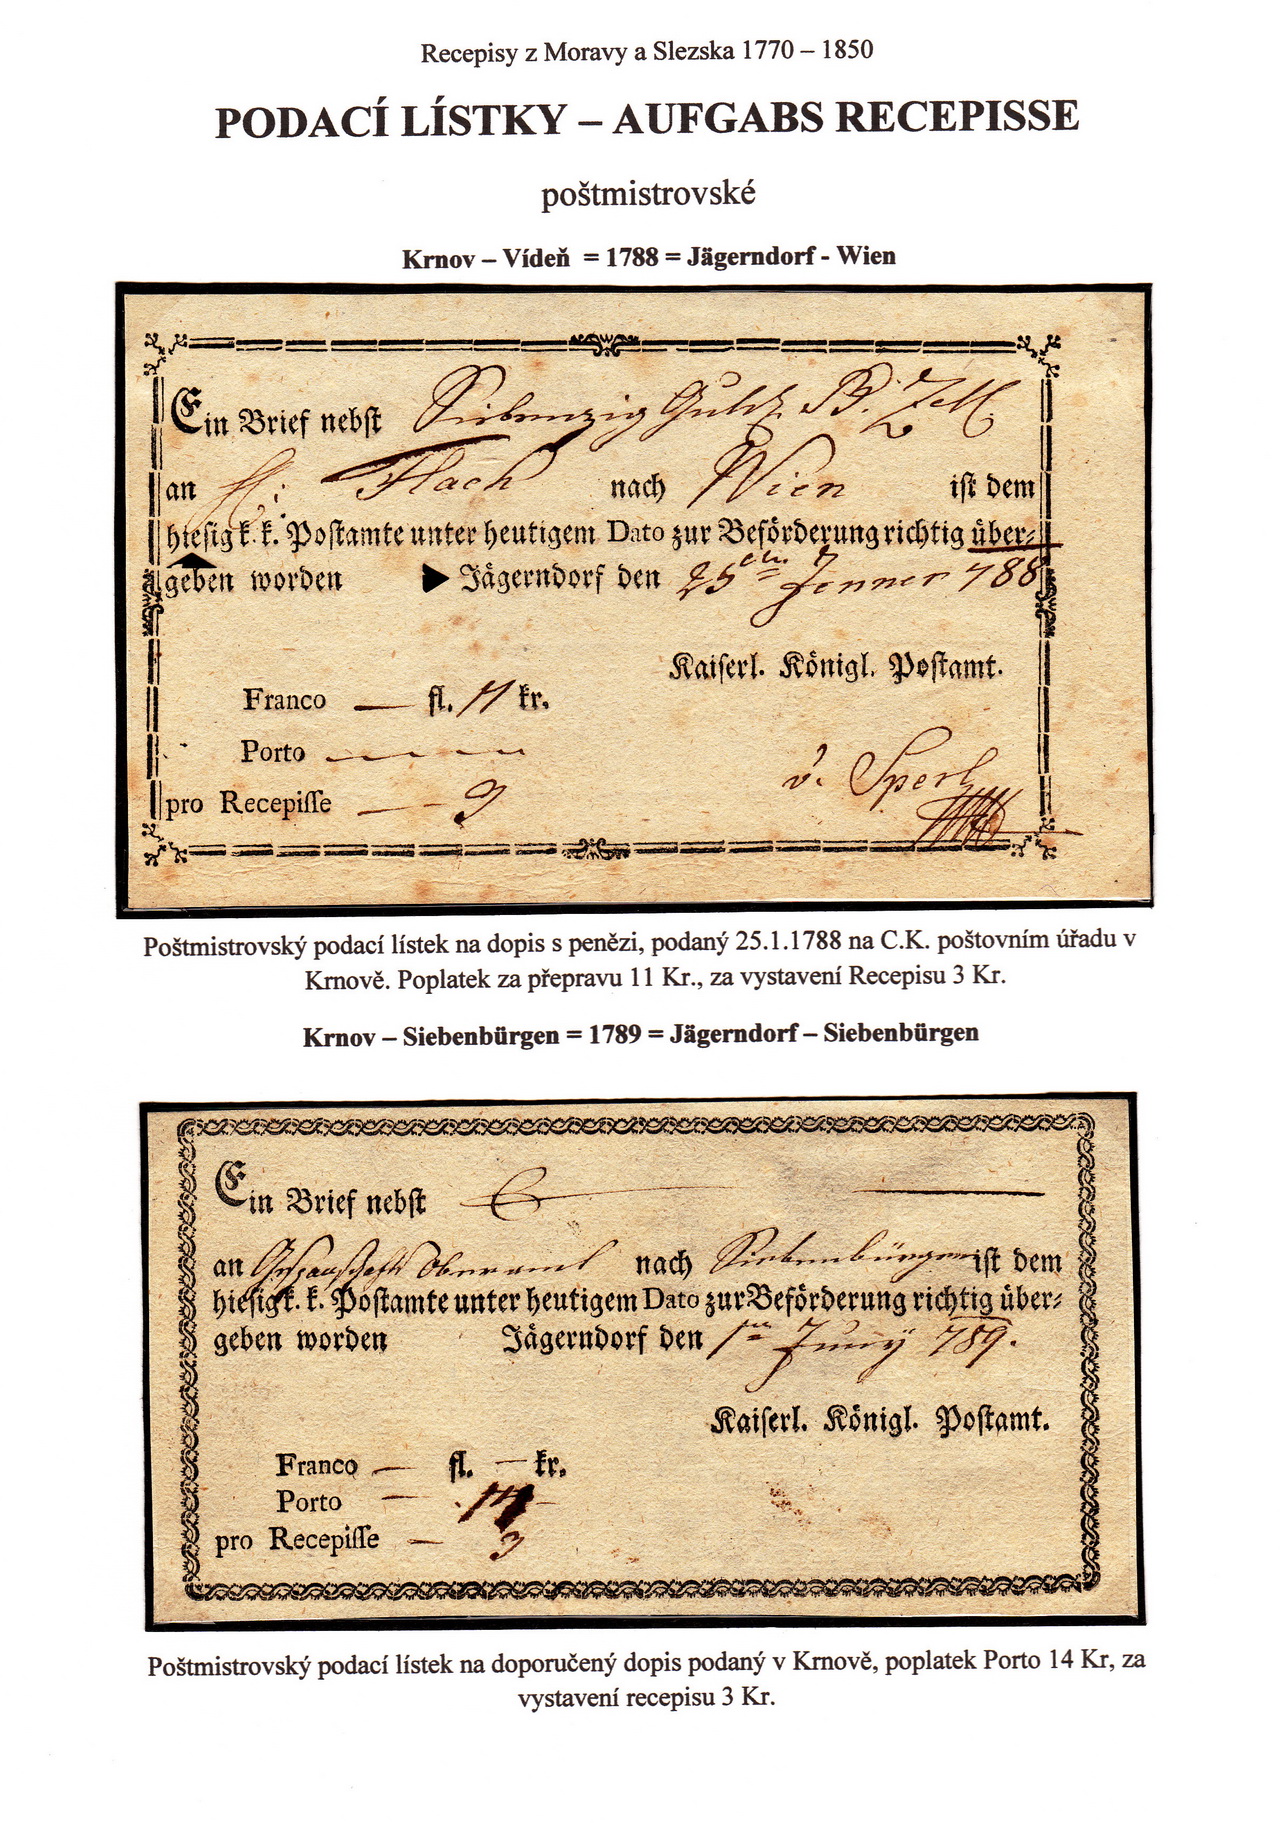 Recepisy z Moravy a Slezska 1770 – 1850
PODACÍ LÍSTKY – AUFGABS RECEPISSE
poštmistrovské
Krnov – Vídeň = 1788 = Jägerndorf - Wien
Ein Brief nebſt Siebenzig
an H: Flach nach Wien iſt dem
hieſig k. k. Poſtamte unter heutigem Dato zur Beförderung richtig über⸗
geben worden Jägerndorf den 25ten Jenner 788
Kaiſerl. Königl. Poſtamt.
Franco — fl. 11 kr.
Porto
v. Sperl
pro Recepiſſe — 3
Poštmistrovský podací lístek na dopis s penězi, podaný 25.1.1788 na C.K. poštovním úřadu v
Krnově. Poplatek za přepravu 11 Kr., za vystavení Recepisu 3 Kr.
Krnov – Siebenbürgen = 1789 = Jägerndorf – Siebenbürgen
Ein Brief nebſt
an nach Siebenbürgen iſt dem
hieſig k. k. Poſtamte unter heutigem Dato zur Beförderung richtig über⸗
geben worden Jägerndorf den 1ten Juny 789.
Kaiſerl. Königl. Poſtamt.
Franco — fl. — kr.
Porto — 14 —
pro Recepiſſe — 3
Poštmistrovský podací lístek na doporučený dopis podaný v Krnově, poplatek Porto 14 Kr, za
vystavení recepisu 3 Kr.